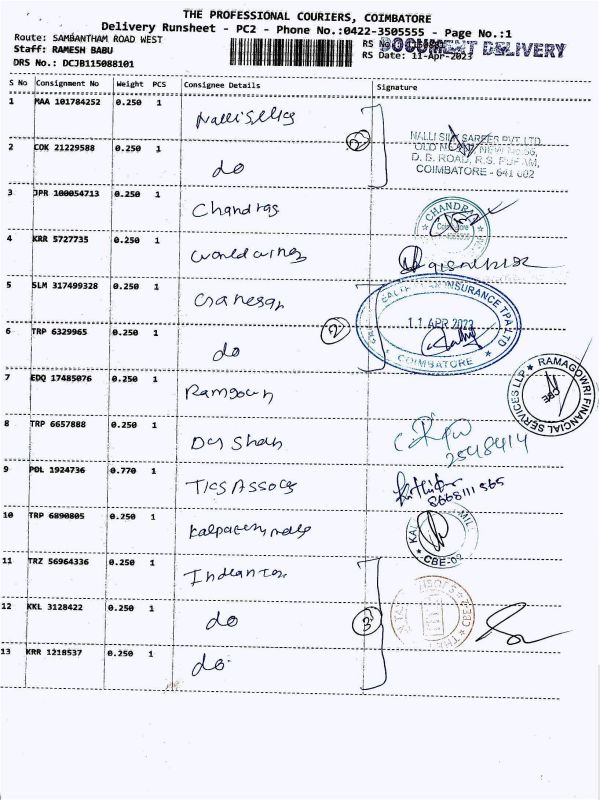 THE PROFESSIONAL COURIERS, COIMBATORE
Delivery Runsheet - PC2 - Phone No.:0422-3505555 - Page No.:1
Route: SAMBANTHAM ROAD WEST
Staff: RAMESH BABU
DRS No.: DCJB115088101
RS No
DOCUMENT DELIVERY
RS Date: 11-Apr-2023
S No Consignment No Weight PCS Consignee Details Signature
1 MAA 101784252 0.250 1 Nalli Silks
NALLI SILK SAREES PVT LTD
2 COK 21229588 0.250 1 do
D. B. ROAD, R.S. PURAM,
COIMBATORE - 641 002
3 JPR 100054713 0.250 1 Chandras
CHANDRA
Coimbatore
4 KRR 5727735 0.250 1 world wings
5 SLM 317499328 0.250 1 Ganesan
INSURANCE TPA LTD
11 APR 2023
COIMBATORE
6 TRP 6329965 0.250 1 do
2
7 EDQ 17485076 0.250 1 Ramgowri
RAMAGOWRI FINANCIAL SERVICES LLP
CBE
8 TRP 6657888 0.250 1 Dar Shan
2548414
9 PDL 1924736 0.770 1 TICS Assocs
8668111565
10 TRP 6890805 0.250 1 kalpatharu mills
KAL MIL
CBE-02
11 TRZ 56964336 0.250 1
12 KKL 3128422 0.250 1 do
3
13 KRR 1218537 0.250 1 do